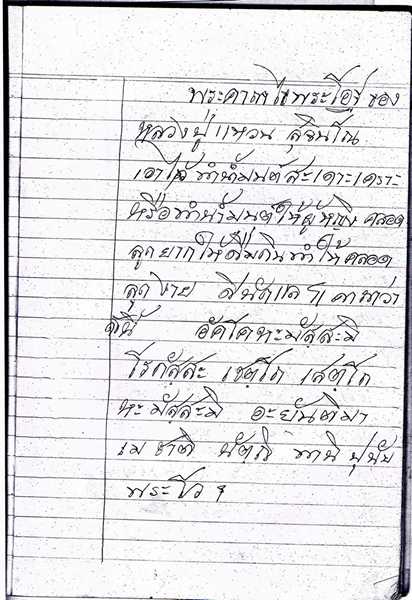 พระคาถาไขพระโอฐ ของ
หลวงปู่แหวน สุจิณโณ
เอาไว้ทำน้ำมนต์สะเดาะเคราะ
หรือทำน้ำมนต์ให้ผู้หญิง คลอด
ลูกยากให้ดื่มกินทำให้คลอด
ลูกง่าย ดีนักแล ฯ คาถาว่า
ดังนี้ อัคโคหะมัสสะมิ
โรกัสสะ เชตโถ เสตโถ
หะมัสสะมิ อะยันติมา
เม ชาติ นัตถิ ทานิ ปุนัพ
พระโว ฯ